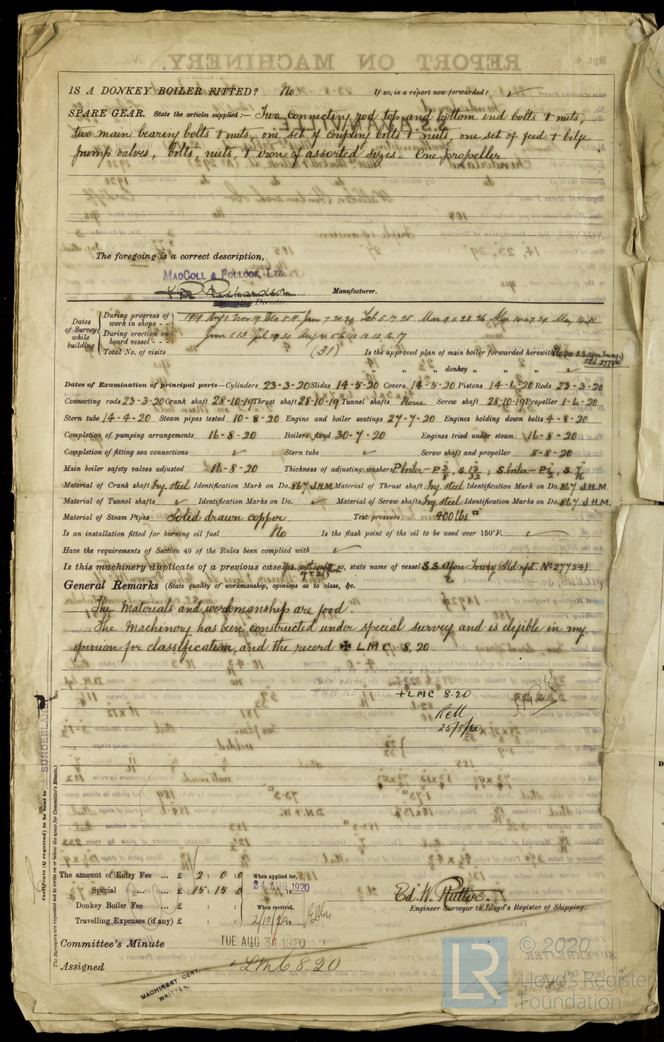 IS A DONKEY BOILER FITTED? No If so, is a report now forwarded? ✓
SPARE GEAR. State the articles supplied:— Two connecting rod top and bottom end bolts & nuts,
two main bearing bolts & nuts, one set of coupling bolts & nuts, one set of feed & bilge
pump valves, bolts, nuts, & iron of assorted sizes. One propeller.
The foregoing is a correct description,
MACCOLL & POLLOCK, LTD.
Manufacturer.
Director
Dates of Survey while building
During progress of work in shops - -
1919 Aug 1. Nov 19 Dec
During erection on board vessel - - -
Total No. of visits (31) Is the approved plan of main boiler forwarded herewith
" " " donkey " " " ✓
Dates of Examination of principal parts—Cylinders 23-3-20 Slides 14-5-20 Covers 14-5-20 Pistons 14-6-20 Rods 23-3-20
Connecting rods 23-3-20 Crank shaft 28-10-19 Thrust shaft 28-10-19 Tunnel shafts None Screw shaft 28-10-19 Propeller 1-6-20
Stern tube 14-4-20 Steam pipes tested 10-8-20 Engine and boiler seatings 27-7-20 Engines holding down bolts 4-8-20
Completion of pumping arrangements 16-8-20 Boilers fixed 30-7-20 Engines tried under steam 16-8-20
Completion of fitting sea connections ✓ Stern tube ✓ Screw shaft and propeller 5-8-20
Main boiler safety valves adjusted 16-8-20 Thickness of adjusting washers P boiler - P 3/8, S 13/32; S boiler - P
Material of Crank shaft Ing. steel Identification Mark on Do. 867 J.H.M. Material of Thrust shaft Ing. steel Identification Mark on Do. 867 J.H.M.
Material of Tunnel shafts ✓ Identification Marks on Do. ✓ Material of Screw shafts Ing. steel Identification Marks on Do. 867 J.H.M.
Material of Steam Pipes Solid drawn copper. Test pressure 400 lbs □"
Is an installation fitted for burning oil fuel No Is the flash point of the oil to be used over 150°F. ✓
Have the requirements of Section 49 of the Rules been complied with ✓
Is this machinery duplicate of a previous case Yes If so, state name of vessel S.S. Afon Towy (Sld rpt. No 27754)
General Remarks (State quality of workmanship, opinions as to class, &c.
The materials and workmanship are good.
The Machinery has been constructed under special survey and is eligible in my
opinion for classification, and the record ✠ LMC 8.20
+LMC 8.20
25/8/20
Certificate (if required) to be sent to
SUNDERLAND
(The Surveyors are requested not to write on or below the space for Committee's Minute.)
The amount of Entry Fee ... £ 2 : 0 : 0 When applied for,
Special ... £ 15 : 15 : 0 24 AUG 1920
Donkey Boiler Fee ... £ : : When received,
Travelling Expenses (if any) £ : : 2/10/20
Engineer Surveyor to Lloyd's Register of Shipping.
Committee's Minute TUE. AUG 31 1920
Assigned + LMC 8.20
MACHINERY CERT. WRITTEN.
LR © 2020
Lloyd's Register
Foundation